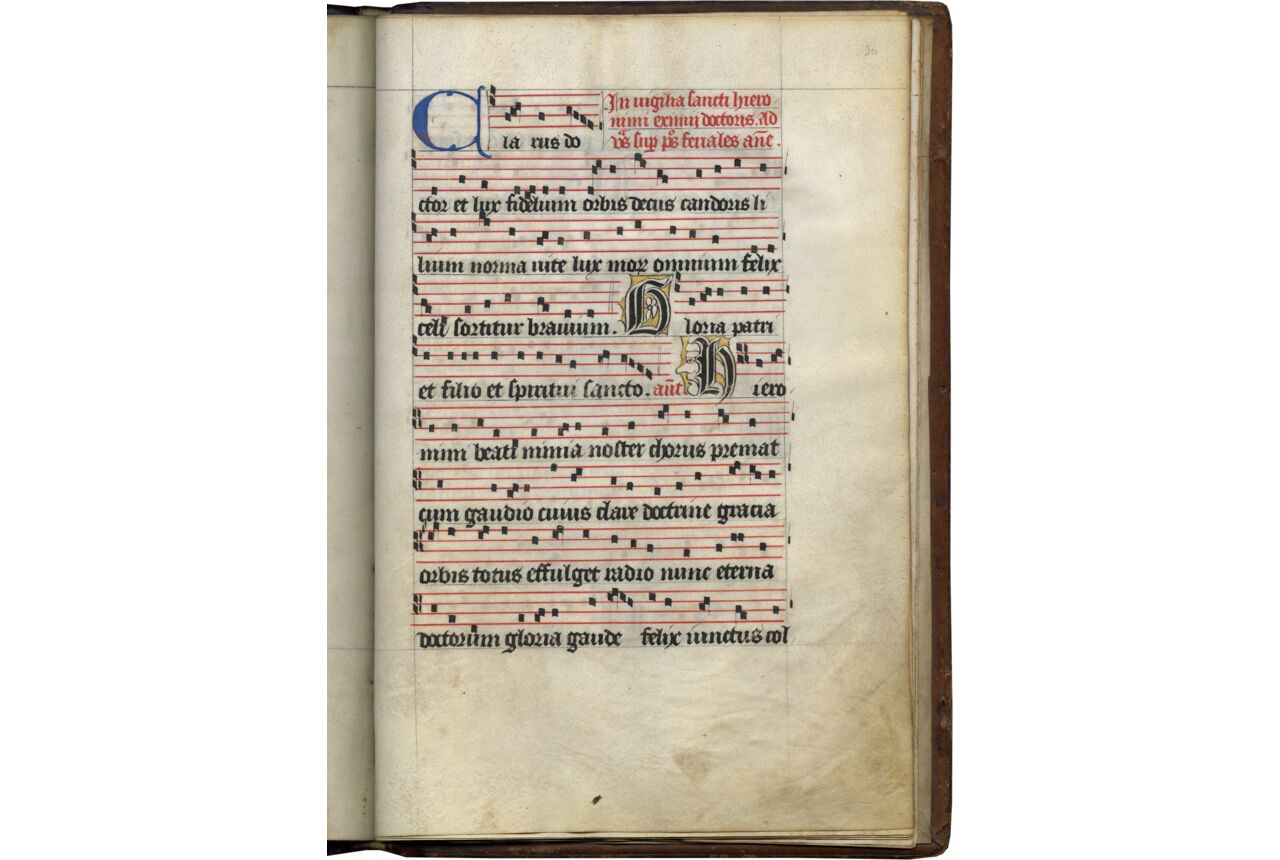 36
In vigilia sancti hiero
nimi eximii doctoris. Ad
vs̄ sup ps̄ feriales añe.
Cla rus do
ctor et lux fidelium orbis decus candoris li
lium norma vite lux morꝝ omnium felix
celi sortitur bravium. Gloria patri
et filio et spiritui sancto. añt Hiero
nimi beati nimia noster chorus premat
cum gaudio cuius clare doctrine gracia
orbis totus effulget radio nunc eterna
doctorum gloria gaude felix iunctus col